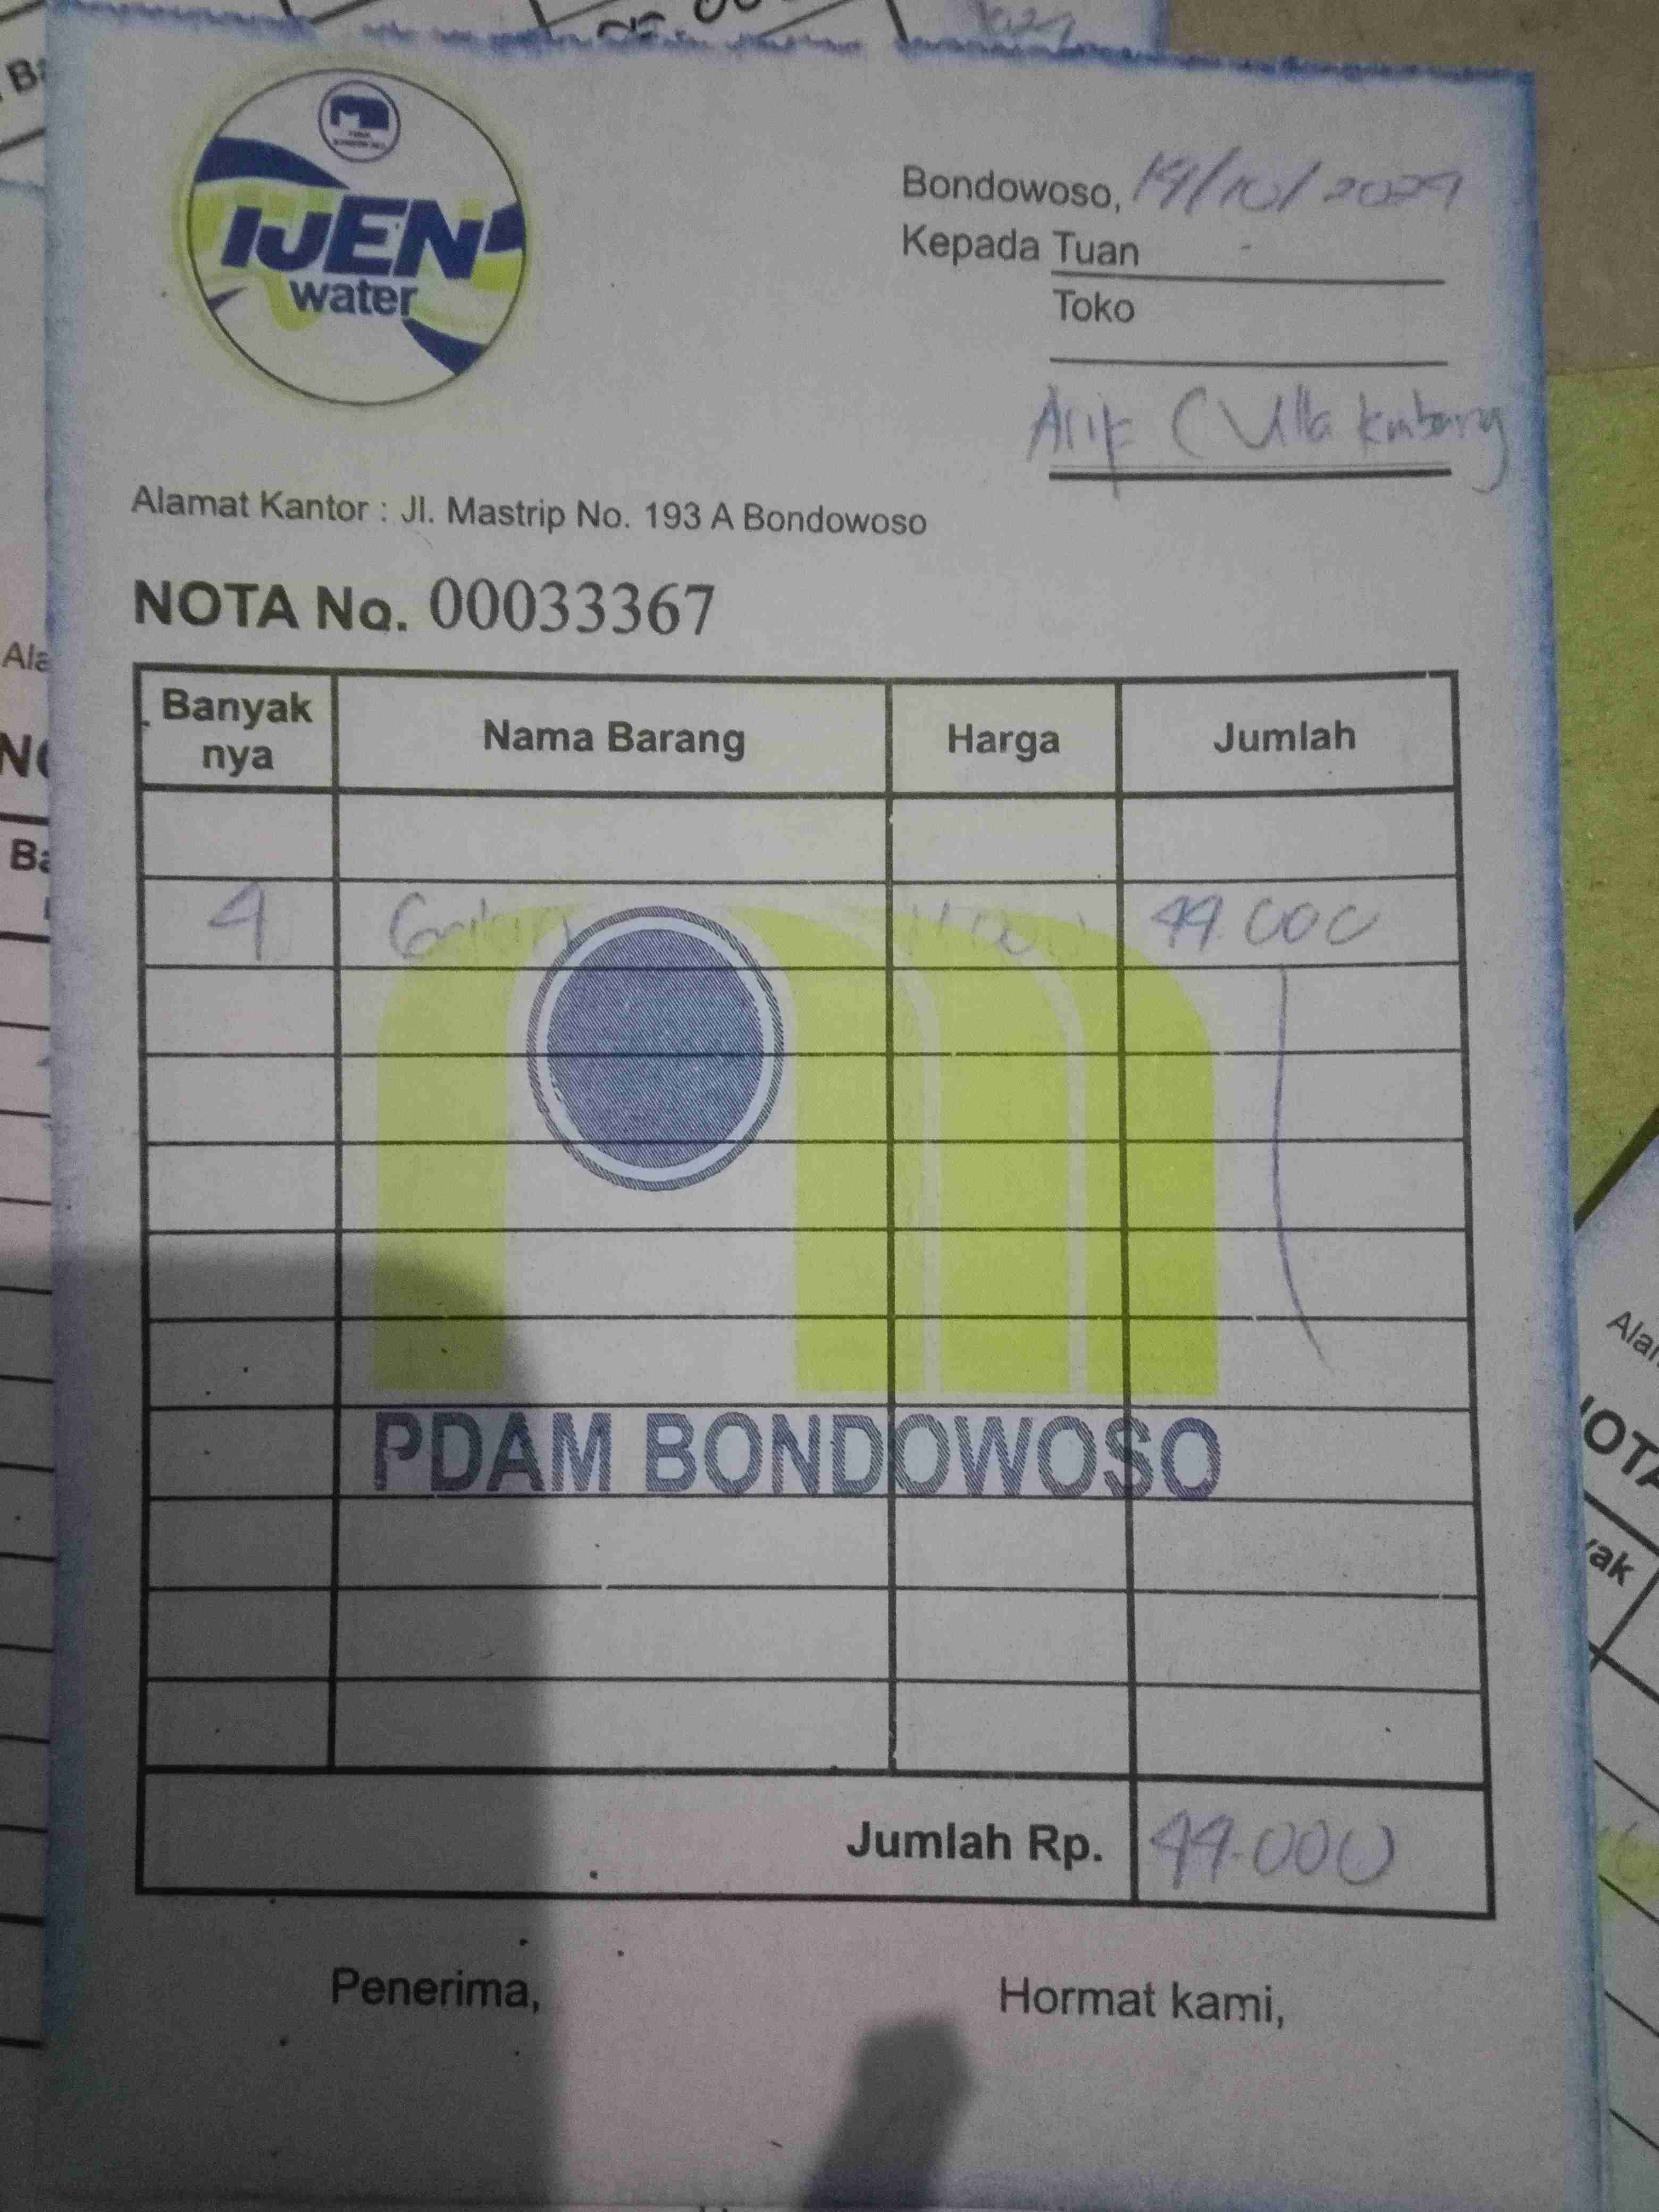 IJEN
water
Bondowoso, 14/10/2024
Kepada Tuan
Toko
Arif (Villa Kembang
Alamat Kantor : Jl. Mastrip No. 193 A Bondowoso
NOTA No. 00033367
Banyak nya Nama Barang Harga Jumlah
4 Galon 11.000 44.000
PDAM BONDOWOSO
Jumlah Rp. 44.000
Penerima, Hormat kami,